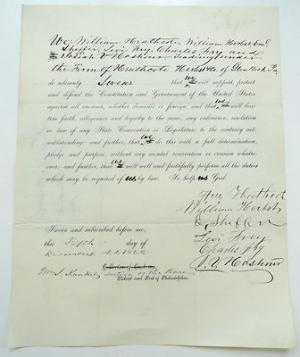 We William Heathcote, William Herbst, 
Sheffer, Levi Fry, Charles Fry and
Trading under
the Firm of Heathcote Herbst &Co. of Glen Rock Pa
do solemnly Swear that we will support, protect
and defend the Constitution and Government of the United States
against all enemies, whether domestic or foreign, and that we will bear
true faith, allegiance and loyalty to the same, any ordinance, resolution
or law of any State Convention or Legislature to the contrary not-
withstanding: and further, that we do this with a full determination,
pledge and purpose, without any mental reservation or evasion whatso-
ever: and further, that we will well and faithfully perform all the duties
which may be required of us by law. So help us God.
Wm Heathcote
William Herbst
E Sheffer
Levi Frey
Charles Fry
Sworn and subscribed before me,
this Fifth day of
December A.D. 1862
Wm S. Justice of the Peace
District and Port of Philadelphia.